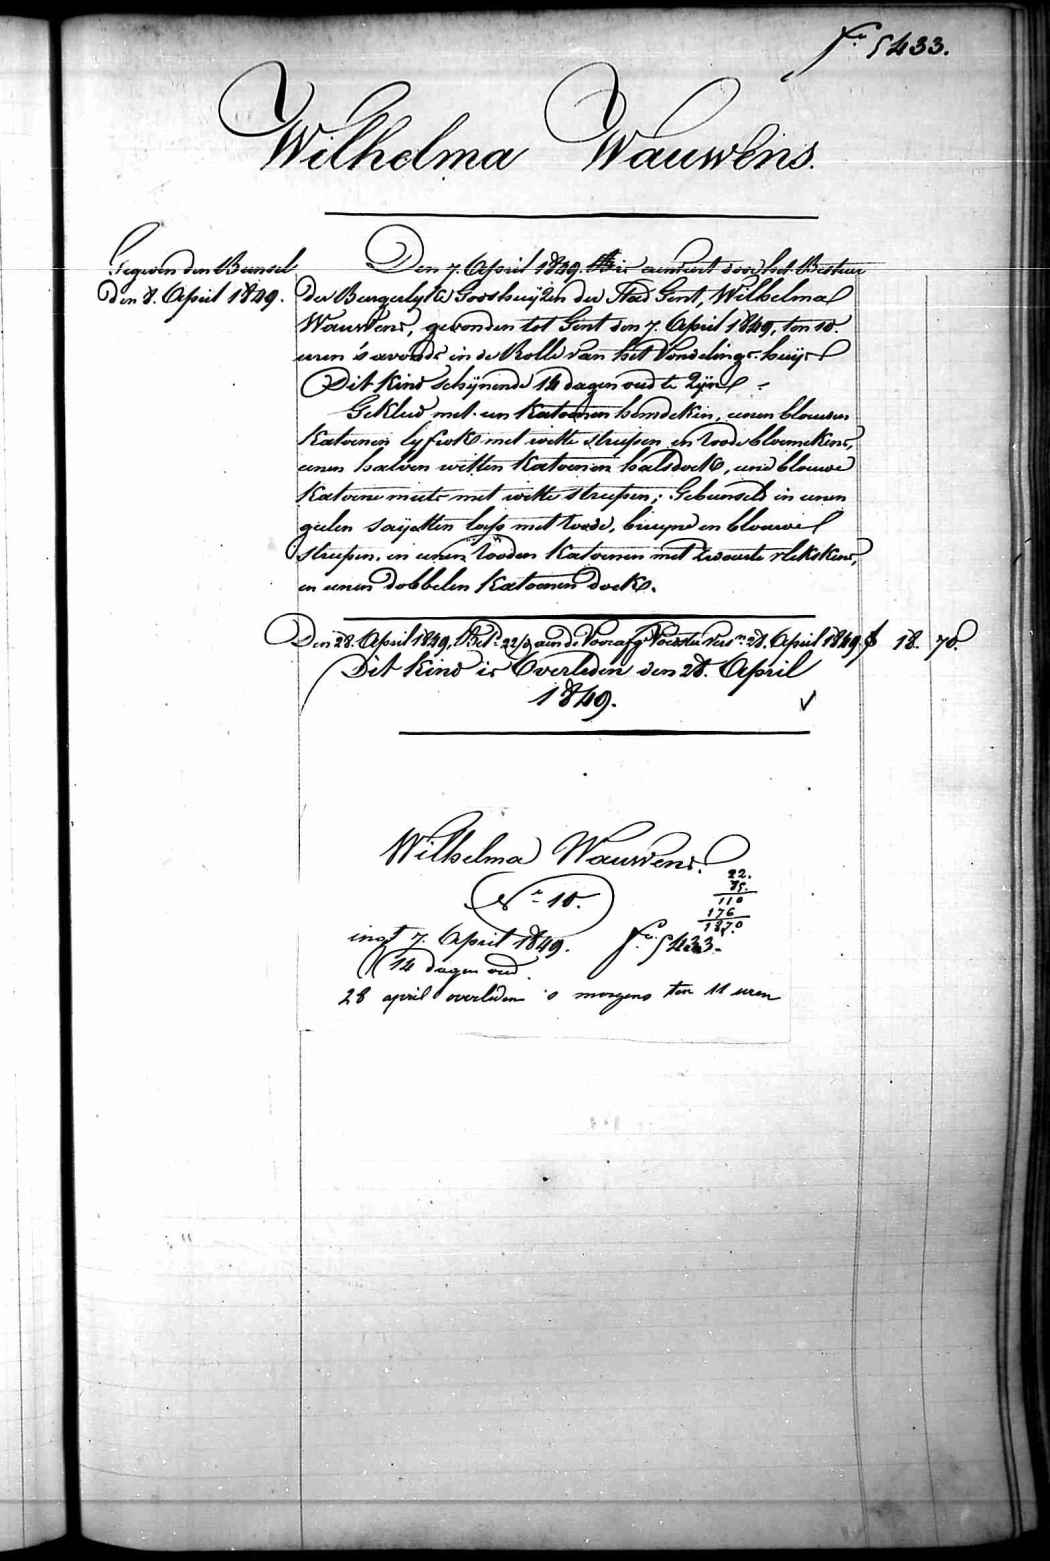 fo 5433.
Wilhelma Wauwens.
Gegeven den Bunsel
den 8. April 1849.
Den 7. April 1849. is aenveert door het Bestuer
der Burgerlyke Godshuyzen der Stad Gent, Wilhelma
Wauwens, gevonden tot Gent den 7. April 1849, ten 10.
uren 's avonds in de Rolle van het Vondelings-huys
Dit Kind schynende 14 dagen oud te zyn
Gekleed met een Katoenen hemdeken, eenen blauwen
Katoenen lyfrok met witte streepen en roode bloemekens,
eenen halven witten Katoenen halsdoek, eene blauwe
Katoene muts met witte streepen; Gebunseld in eenen
geelen sayetten met roode, bruyne en blauwe
streepen, en eenen rooden Katoenen met zwarte vlekskens,
en eenen dobbelen Katoenen doek.
Den 28. April 1849, aen de Voedster 28. April 1849. 18. 70.
Dit Kind is Overleden den 28. April
1849.
Wilhelma Wauwens.
No 10.
22.
85.
110
176
1870
ingt 7. April 1849. fo 5433.
14 dagen oud.
28 april overleden 's morgens ten 11 uren